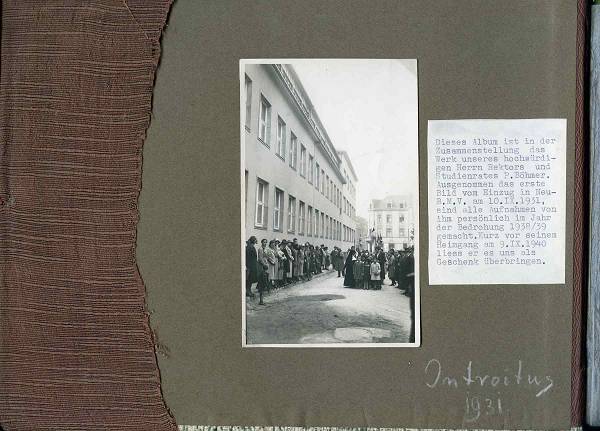 Dieses Album ist in der
Zusammenstellung das
Werk unseres hochwürdi-
gen Herrn Rektors und
Studienrates P.Böhmer.
Ausgenommen das erste
Bild vom Einzug in Neu-
B.M.V. am 10.IX.1931,
sind alle Aufnahmen von
ihm persönlich im Jahr
der Bedrohung 1938/39
gemacht.Kurz vor seinem
Heimgang am 9.IX.1940
liess er es uns als
Geschenk überbringen.
Introitus
1931